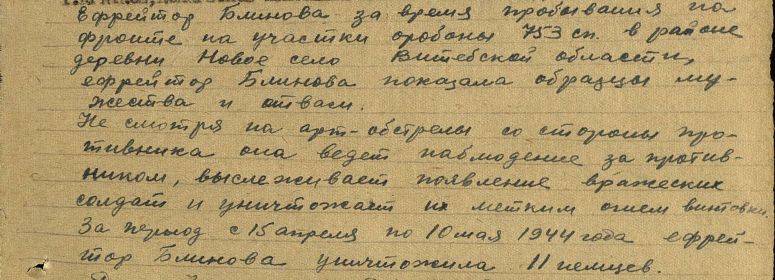 Ефрейтор Блинова за время пробывания на
фронте на участки оброны 753 сп. в районе
деревни Новое село Витебской области,
ефрейтор Блинова показала образцы му-
жества и отваги.
Не смотря на арт-обстрелы со стороны про-
тивника она ведет наблюдение за против-
ником, выслеживает появление вражеских
солдат и уничтожает их метким огнем винтовки.
За период с 15 апреля по 10 мая 1944 года ефрей-
тор Блинова уничтожила 11 немцев.